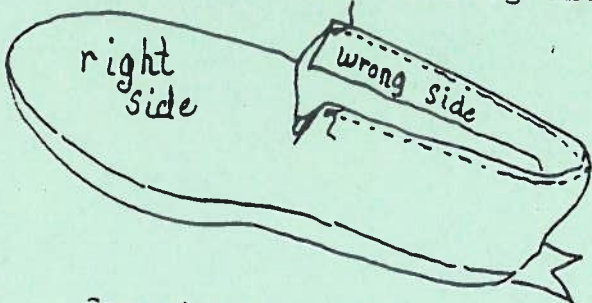 right
side
wrong side